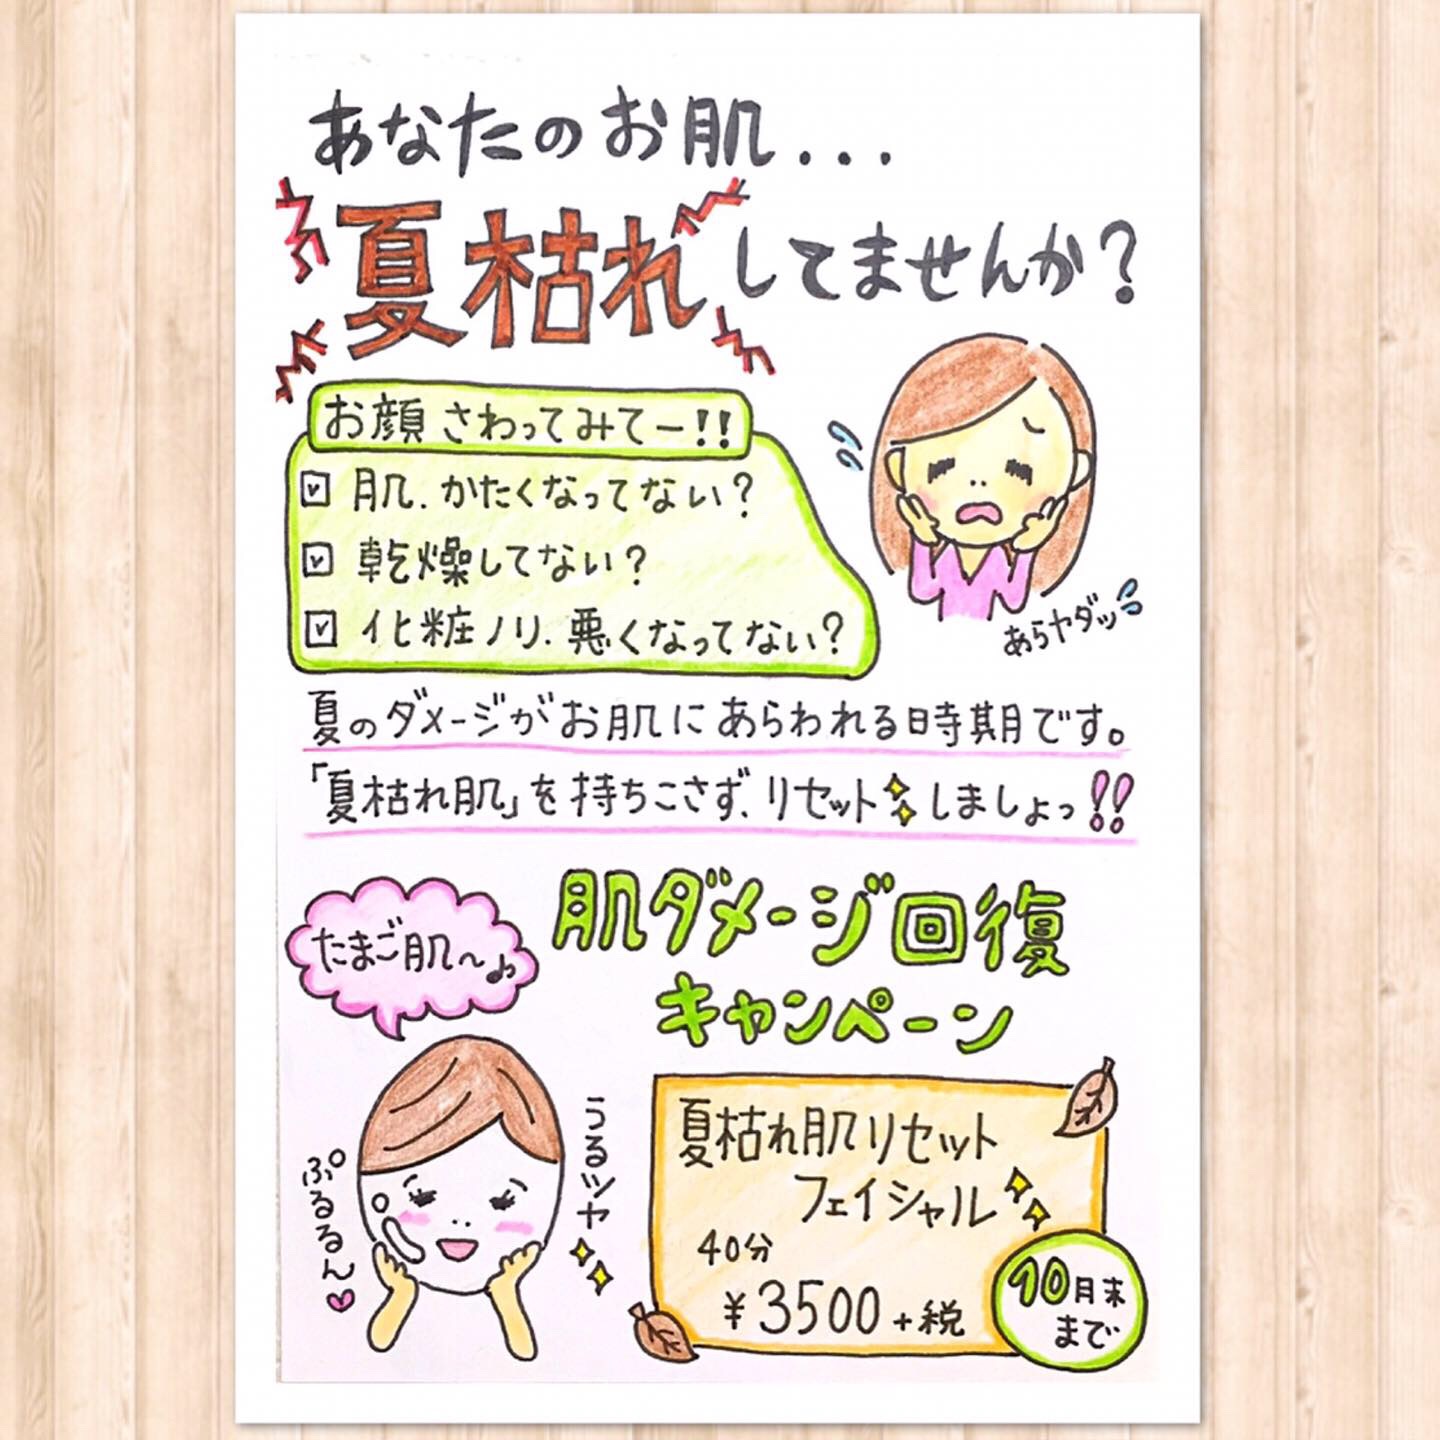 あなたのお肌...
夏枯れしてませんか？
お顔さわってみてー!!
肌.かたくなってない？
乾燥してない？
化粧ノリ.悪くなってない？
あらヤダッ
夏のダメージがお肌にあらわれる時期です。
「夏枯れ肌」を持ちこさず、リセットしましょっ!!
たまご肌〜♪
肌ダメージ回復
キャンペーン
ぷるるん
うるツヤ
夏枯れ肌リセット
フェイシャル
40分
¥3500+税
10月末
まで